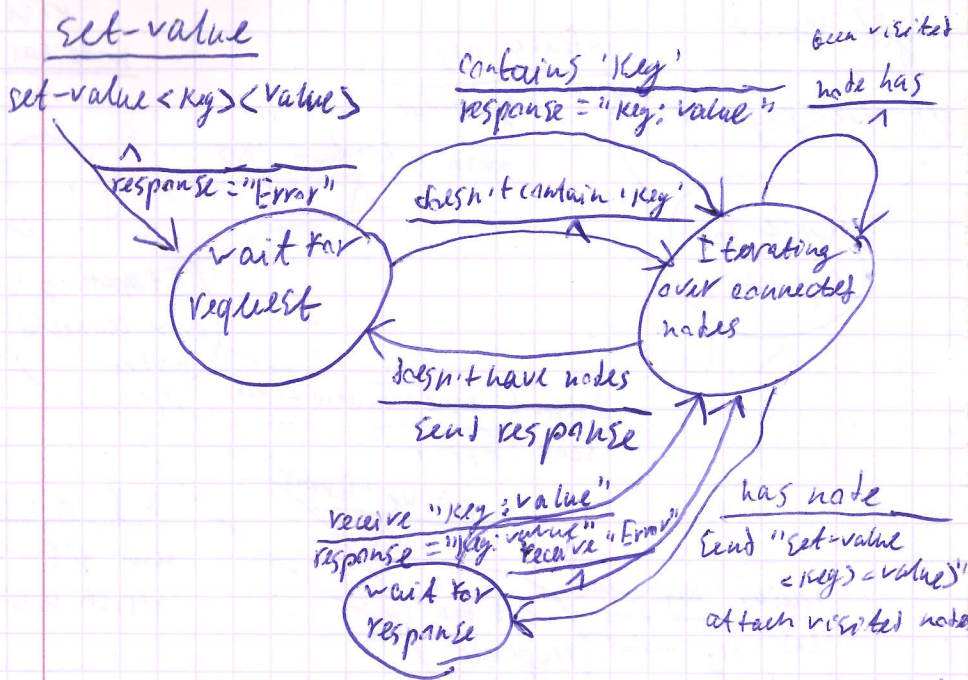 set-value
set-value <key> <value>
^
response = "Error"
contains 'key'
response = "key: value"
been visited
node has
^
doesn't contain 'key'
^
wait for
request
Iterating
over connected
nodes
doesn't have nodes
send response
receive "key: value"
response = "key: value"
receive "Error"
^
has node
send "set-value
<key> <value>"
attach visited nodes
wait for
response